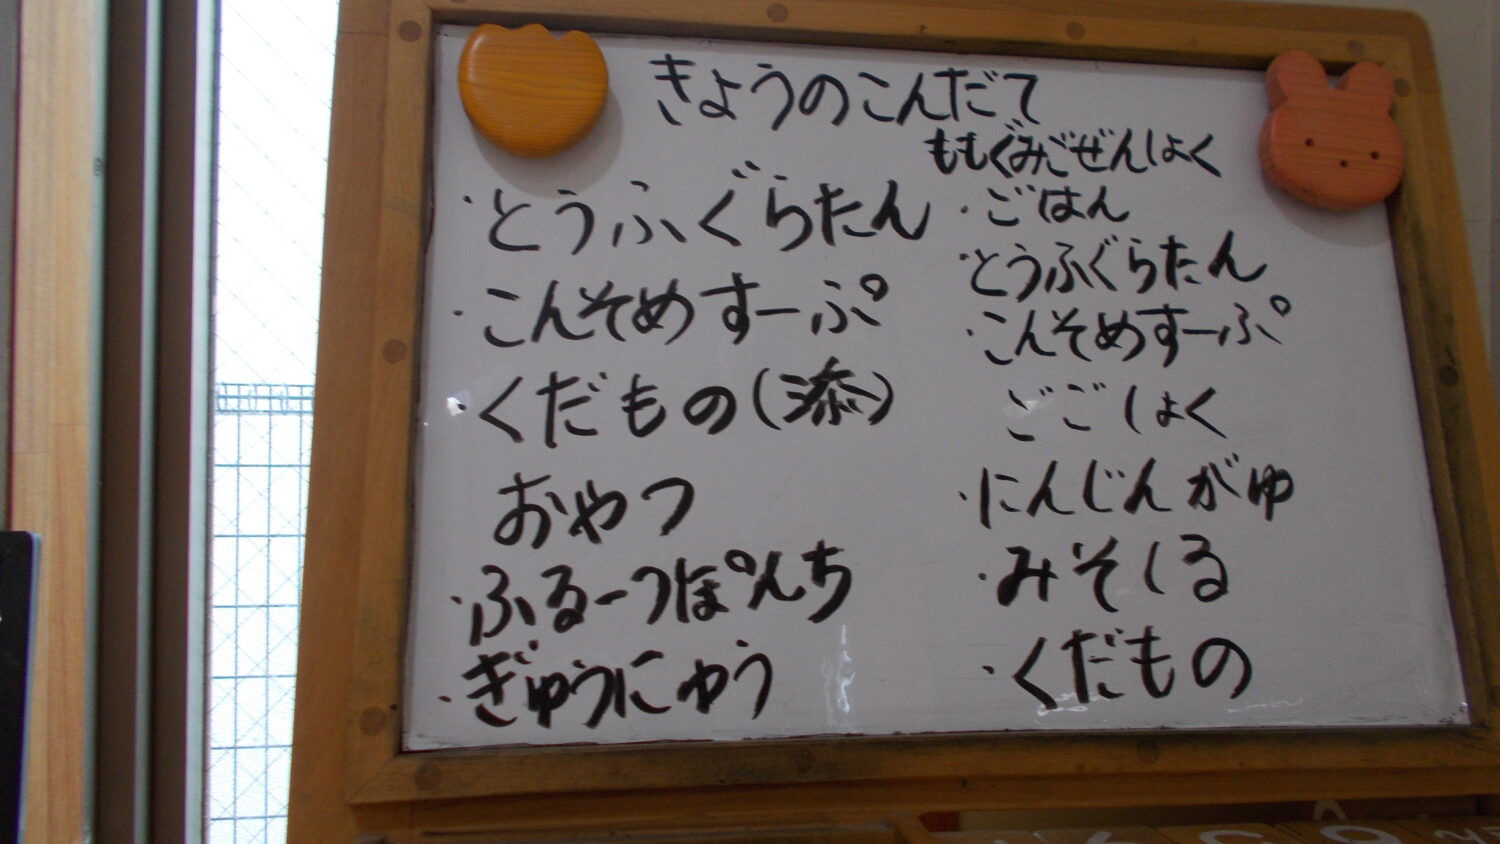 きょうのこんだて
・とうふぐらたん
・こんそめすーぷ
・くだもの(添)
おやつ
・ふるーつぽんち
・ぎゅうにゅう
ももぐみごぜんしょく
・ごはん
・とうふぐらたん
・こんそめすーぷ
ごごしょく
・にんじんがゆ
・みそしる
・くだもの